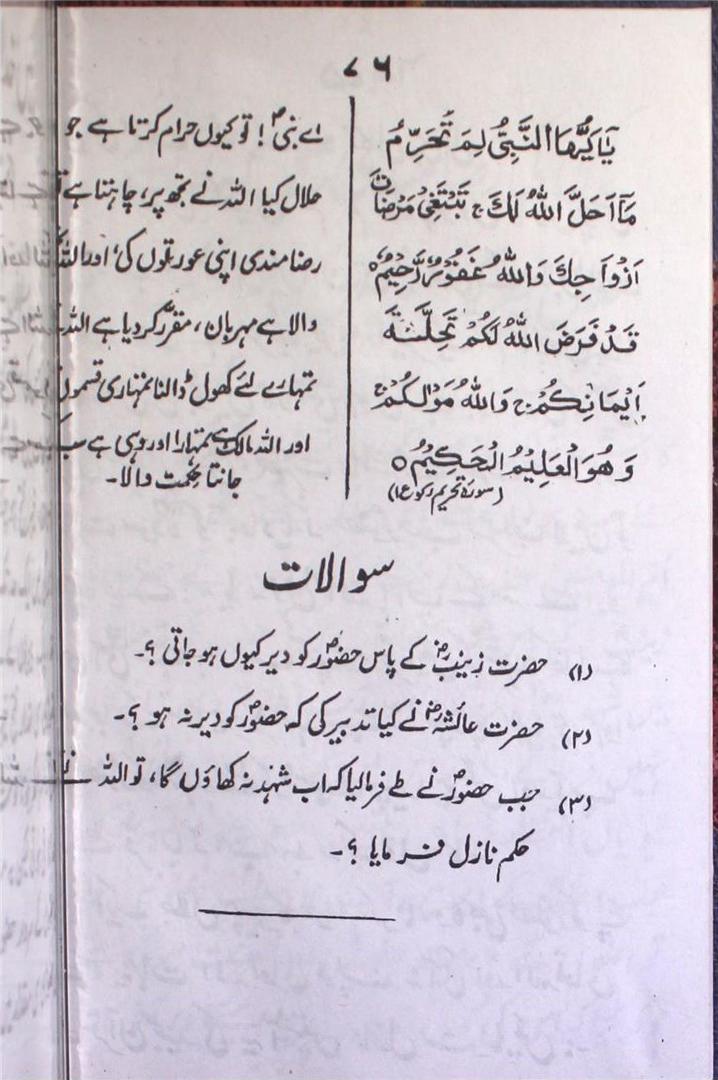 ۷۶
يٰۤاَيُّهَا النَّبِيُّ لِمَ تُحَرِّمُ
مَاۤ اَحَلَّ اللّٰهُ لَكَ ج تَبْتَغِيْ مَرْضَاتَ
اَزْوَاجِكَ وَاللّٰهُ غَفُوْرٌ رَّحِيْمٌ ○
قَدْ فَرَضَ اللّٰهُ لَكُمْ تَحِلَّةَ
اَيْمَانِكُمْ ج وَاللّٰهُ مَوْلٰىكُمْ ج
وَهُوَ الْعَلِيْمُ الْحَكِيْمُ ○
(سورۃ تحریم رکوع ۱)
اے نبیؐ! تو کیوں حرام کرتا ہے جو
حلال کیا اللہ نے تجھ پر، چاہتا ہے تو
رضا مندی اپنی عورتوں کی، اور اللہ
والا ہے مہربان، مقرر کر دیا ہے اللہ
تمہارے لئے کھول ڈالنا تمہاری قسموں
اور اللہ مالک ہے تمہارا اور وہی ہے سب
جانتا حکمت والا۔
سوالات
(۱) حضرت زینبؓ کے پاس حضورؐ کو دیر کیوں ہو جاتی ؟۔
(۲) حضرت عائشہؓ نے کیا تدبیر کی کہ حضورؐ کو دیر نہ ہو ؟۔
(۳) جب حضورؐ نے طے فرمالیا کہ اب شہد نہ کھاؤں گا، تو اللہ نے
حکم نازل فرمایا ؟۔